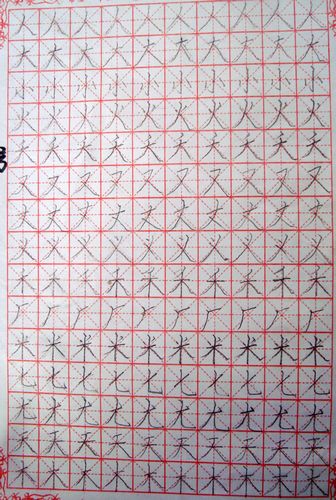 人人人人人人人人人人
大大大大大大大大大大
小小小小小小小小小小
火火火火火火火火火火
又又又又又又又又又又
丈丈丈丈丈丈丈丈丈丈
义义义义义义义义义义
禾禾禾禾禾禾禾禾禾禾
厂厂厂厂厂厂厂厂厂厂
米米米米米米米米米米
七七七七七七七七七七
尤尤尤尤尤尤尤尤尤尤
天天天天天天天天天天
木木木木木木木木木木